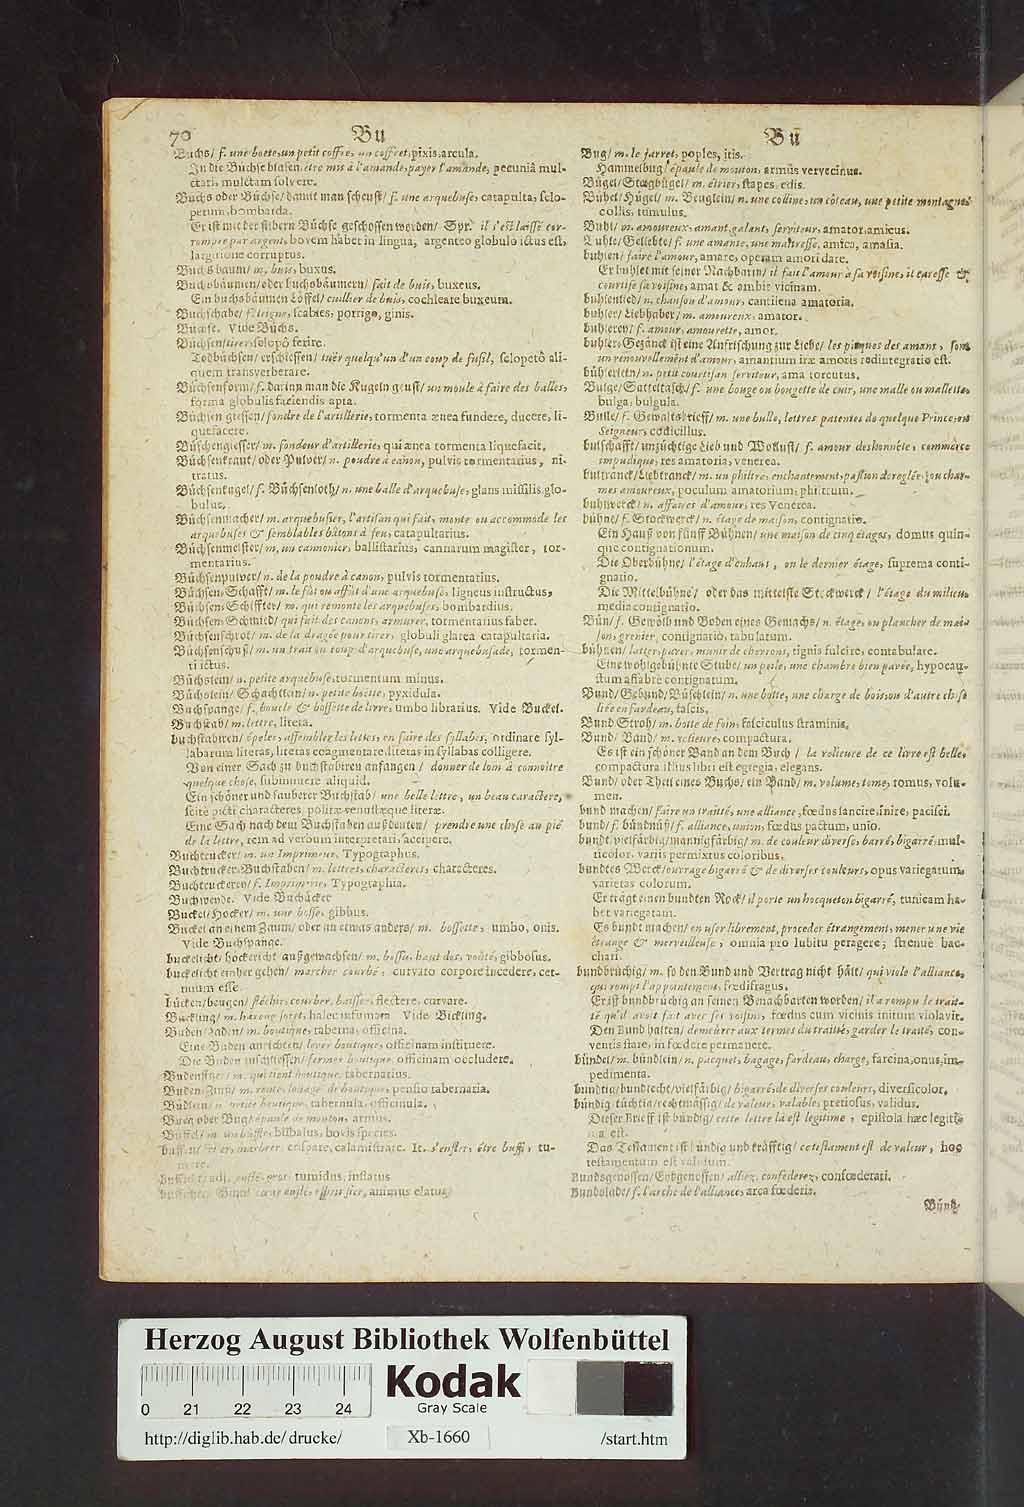 70 Bu Bu
Buchs/ f. une boete, un petit coffre, un coffret, pixis, arcula.
In die Büchse blasen, être mis à l'amande, payer l'amande, pecuniâ mul-
ctari, mulctam solvere.
Buchs oder Büchse/ damit man scheust/ f. une arquebuse, catapulta, sclo-
petum, bombarda.
Er ist mit der silbern Büchse geschossen worden/ Spr. il s'est laissé cor-
rompre par argent, bovem habet in lingua, argenteo globulo ictus est,
largitione corruptus.
Buchsbaum/ m. buis, buxus.
Buchsbäumen/ oder buchsbäumern/ fait de buis, buxeus.
Ein buchsbäumen Löffel/ cuillier de buis, cochleare buxeum.
Buchschabe/ f. teigne, scabies, porrigo, ginis.
Buchse. Vide Buchs.
Büchsen/ tirer, sclopô ferire.
Todbüchsen/ erschiessen/ tuër quelqu'un d'un coup de fusil, sclopetô ali-
quem transverberare.
Büchsenform/ f. darinn man die Kugeln geust/ un moule à faire des balles,
forma globulis faciendis apta.
Büchsen giessen/ fondre de l'artillerie, tormenta ænea fundere, ducere, li-
quefacere.
Büchsengiesser/ m. fondeur d'artillerie, qui ænea tormenta liquefacit.
Büchsenkraut/ oder Pulver/ n. poudre à canon, pulvis tormentarius, ni-
tratus.
Büchsenkugel/ f. Büchsenloth/ n. une balle d'arquebuse, glans missilis, glo-
bulus.
Büchsenmacher/ m. arquebusier, l'artisan qui fait, monte ou accommode les
arquebuses & semblables bâtons à feu, catapultarius.
Büchsenmeister/ m. un cannonier, ballistarius, cannarum magister, tor-
mentarius.
Büchsenpulver/ n. de la poudre à canon, pulvis tormentarius.
Büchsen-Schafft/ m. le fût ou affût d'une arquebuse, ligneus instructus,
Büchsen-Schiffter/ m. qui remonte les arquebuses, bombardius.
Büchsen-Schmid/ qui fait des canons, armurer, tormentarius faber.
Büchsenschrot/ m. de la dragée pour tirer, globuli glarea catapultaria.
Büchsenschuß/ m. un trait ou coup d'arquebuse, une arquebusade, tormen-
ti ictus.
Büchslein/ n. petite arquebuse, tormentum minus.
Büchslein/ Schächtlein/ n. petite boëtte, pyxidula.
Buchspange/ f. boucle & bossette de livre, umbo librarius. Vide Buckel.
Buchstab/ m. lettre, litera.
buchstabiren/ épeler, assembler les lettres, en faire des syllabes, ordinare syl-
labarum literas, literas coagmentare, literas in syllabas colligere.
Von einer Sach zu buchstabiren anfangen/ donner de loin à connoître
quelque chose, subinnuere aliquid.
Ein schöner und sauberer Buchstab/ une belle lettre, un beau caractere,
scitè picti characteres, politæ venustæque literæ.
Eine Sach nach dem Buchstaben außdeuten/ prendre une chose au pié
de la lettre, rem ad verbum interpretari, accipere.
Buchtrucker/ m. un Imprimeur, Typographus.
Buchtrucker-Buchstaben/ m. lettres, characteres, characteres.
Buchtruckerey/ f. Imprimerie, Typographia.
Buchwende. Vide Buchäcker
Buckel/ Hocker/ m. une bosse, gibbus.
Buckel an einem Zaum/ oder an etwas anders/ m. bossette, umbo, onis.
Vide Buchspange.
buckelicht/ höckericht außgewachsen/ m. bossu, haut dos, voûté, gibbosus.
buckelicht einher gehen/ marcher courbé, curvato corpore incedere, cer-
nuum esse.
bücken/ beugen/ fléchir, courber, baisser, flectere, curvare.
Bückling/ m. hareng soret, halec infumata Vide Bickling.
Buden/ Laden/ m. boutique, taberna, officina.
Eine Buden anrichten/ lever boutique, officinam instituere.
Die Buden zuschliessen/ fermer boutique, officinam occludere.
Budensitzer/ m. qui tient boutique, tabernarius.
Buden-Zinß/ m. rente, louage de boutique, pensio tabernaria.
Büdlein/ n. petite boutique, tabernula, officinula.
Bueg oder Bug/ épaule de mouton, armus.
Buffel/ m. un buffle, bubalus, bovis species.
crispare, calamistrare. It. s'enfler, être buffi, tu-
mere.
tumidus, inflatus
animus elatus
Bug/ m. le jarret, poples, itis.
Hammelbug/ épaule de mouton, armus vervecinus.
Bügel/ Stegbügel/ m. étrier, stapes, edis.
Bühel/ Hügel/ m. Beuglein/ n. une colline, un côteau, une petite montagne
collis, tumulus.
Buhl/ m. amoureux, amant, galant, serviteur, amator, amicus.
Buhle/ Geliebte/ f. une amante, une maîtresse, amica, amasia.
buhlen/ faire l'amour, amare, operam amori dare.
Er buhlet mit seiner Nachbarin/ il fait l'amour à sa voisine, il caresse &
courtise sa voisine, amat & ambit vicinam.
buhlenlied/ n. chanson d'amour, cantilena amatoria.
buhler/ Liebhaber/ m. amoureux, amator.
buhlerey/ f. amour, amourette, amor.
buhler-Gezänck ist eine Anfrischung zur Liebe/ les piques des amans, sont
un renouvellement d'amour, amantium iræ amoris redintegratio est.
bühlerlein/ n. petit courtisan serviteur, ama torcutus.
Bulge/ Satteltasch/ f. une bouge ou bougette de cuir, une malle ou mallette,
bulga, bulgula.
Bulle/ f. Gewaltsbrieff/ m. une bulle, lettres patentes de quelque Prince, ou
Seigneur, codicillus.
bulschafft/ unzüchtige Lieb und Wollust/ f. amour deshonnête, commerce
impudique, res amatoria, venerea.
bultranck/ Liebtranck/ m. un philtre, enchantement, passion dereglée, ou char-
mes amoureux, poculum amatorium, philtrum.
buhlwerck/ n. affaires d'amour, res Venerea.
bühne/ f. Stockwerck/ n. étage de maison, contignatio.
Ein Hauß von fünff Bühnen/ une maison de cinq étages, domus quin-
que contignationum.
Die Oberbühne/ l'étage d'enhaut, ou le dernier étage, suprema conti-
gnatio.
Die Mittelbühne/ oder das mittelste Stockwerck/ l'étage du milieu,
media contignatio.
Bün/ f. Gewölb und Boden eines Gemachs/ n. étage, ou plancher de mai-
son, grenier, contignatio, tabulatum.
bühnen/ latter, paver, munir de chevrons, tignis fulcire, contabulare.
Eine wohlgebühnte Stube/ un poile, une chambre bien pavée, hypocau-
stum affabrè contignatum.
Bund/ Gebund/ Büschlein/ n. une botte, une charge de bois, ou d'autre chose
liée en fardeau, fascis.
Bund Stroh/ m. botte de foin, fasciculus straminis.
Bund/ Band/ m. relieure, compactura.
Es ist ein schöner Band an dem Buch/ la relieure de ce livre est belle,
compactura illius libri est egregia, elegans.
Bund/ oder Theil eines Buchs/ ein Band/ m. volume, tome, tomus, volu-
men.
bund machen/ faire un traité, une alliance, fœdus sancire, inire, pacisci.
bund/ f. bündnüß/ f. alliance, union, fœdus pactum, unio.
bundt/ vielfärbig/ mannigfärbig/ m. de couleur diverse, barré, bigarré, mul-
ticolor, variis permixtus coloribus.
bundtes Werck/ ouvrage bigarré & de diverses couleurs, opus variegatum,
varietas colorum.
Er trägt einen bundten Rock/ il porte un hocqueton bigarré, tunicam ha-
bet variegatam.
Es bundt machen/ en user librement, proceder étrangement, mener une vie
étrange & merveilleuse, omnia pro lubitu peragere, strenuè bac-
chari.
bundbrüchig/ m. so den Bund und Vertrag nicht hält/ qui viole l'alliance,
qui rompt l'appointement, fœdifragus.
Er ist bundbrüchig an seinen Benachbarten worden/ il a rompu le trait-
té qu'il avoit fait avec ses voisins, fœdus cum vicinis initum violavit.
Den Bund halten/ demeurer aux termes du traité, garder le traité, con-
ventis stare, in fœdere permanere.
bündel/ m. bündlein/ n. pacquet, bagage, fardeau, charge, sarcina, onus, im-
pedimenta.
bundtig/ bundlecht/ vielfärbig/ bigarré, de diverses couleurs, diversicolor.
bündig-tüchtig/ rechtmässig/ de valeur, valable, pretiosus, validus.
Dieser Brieff ist bündig/ cette lettre là est legitime, epistola hæc legiti-
ma est.
Das Testament ist bündig und kräfftig/ ce testament est de valeur, hoc
testamentum est validum.
Bundsgenossen/ Eydgenossen/ alliez, confederez, confœderati.
Bundslade/ f. l'arche de l'alliance, arca fœderis.
Bünd-
Herzog August Bibliothek Wolfenbüttel
Kodak
Gray Scale
0 21 22 23 24
http://diglib.hab.de/drucke/ Xb-1660 /start.htm